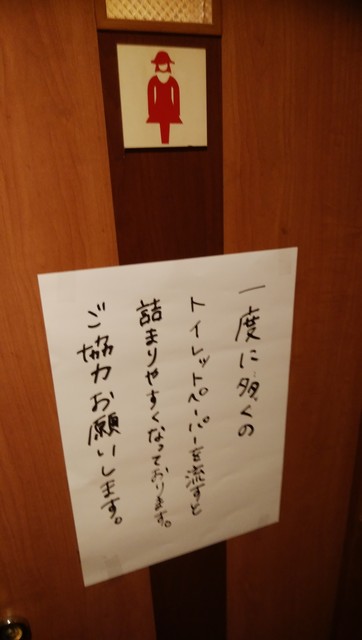 一度に多くの
トイレットペーパーを流すと
詰まりやすくなっております。
ご協力お願いします。